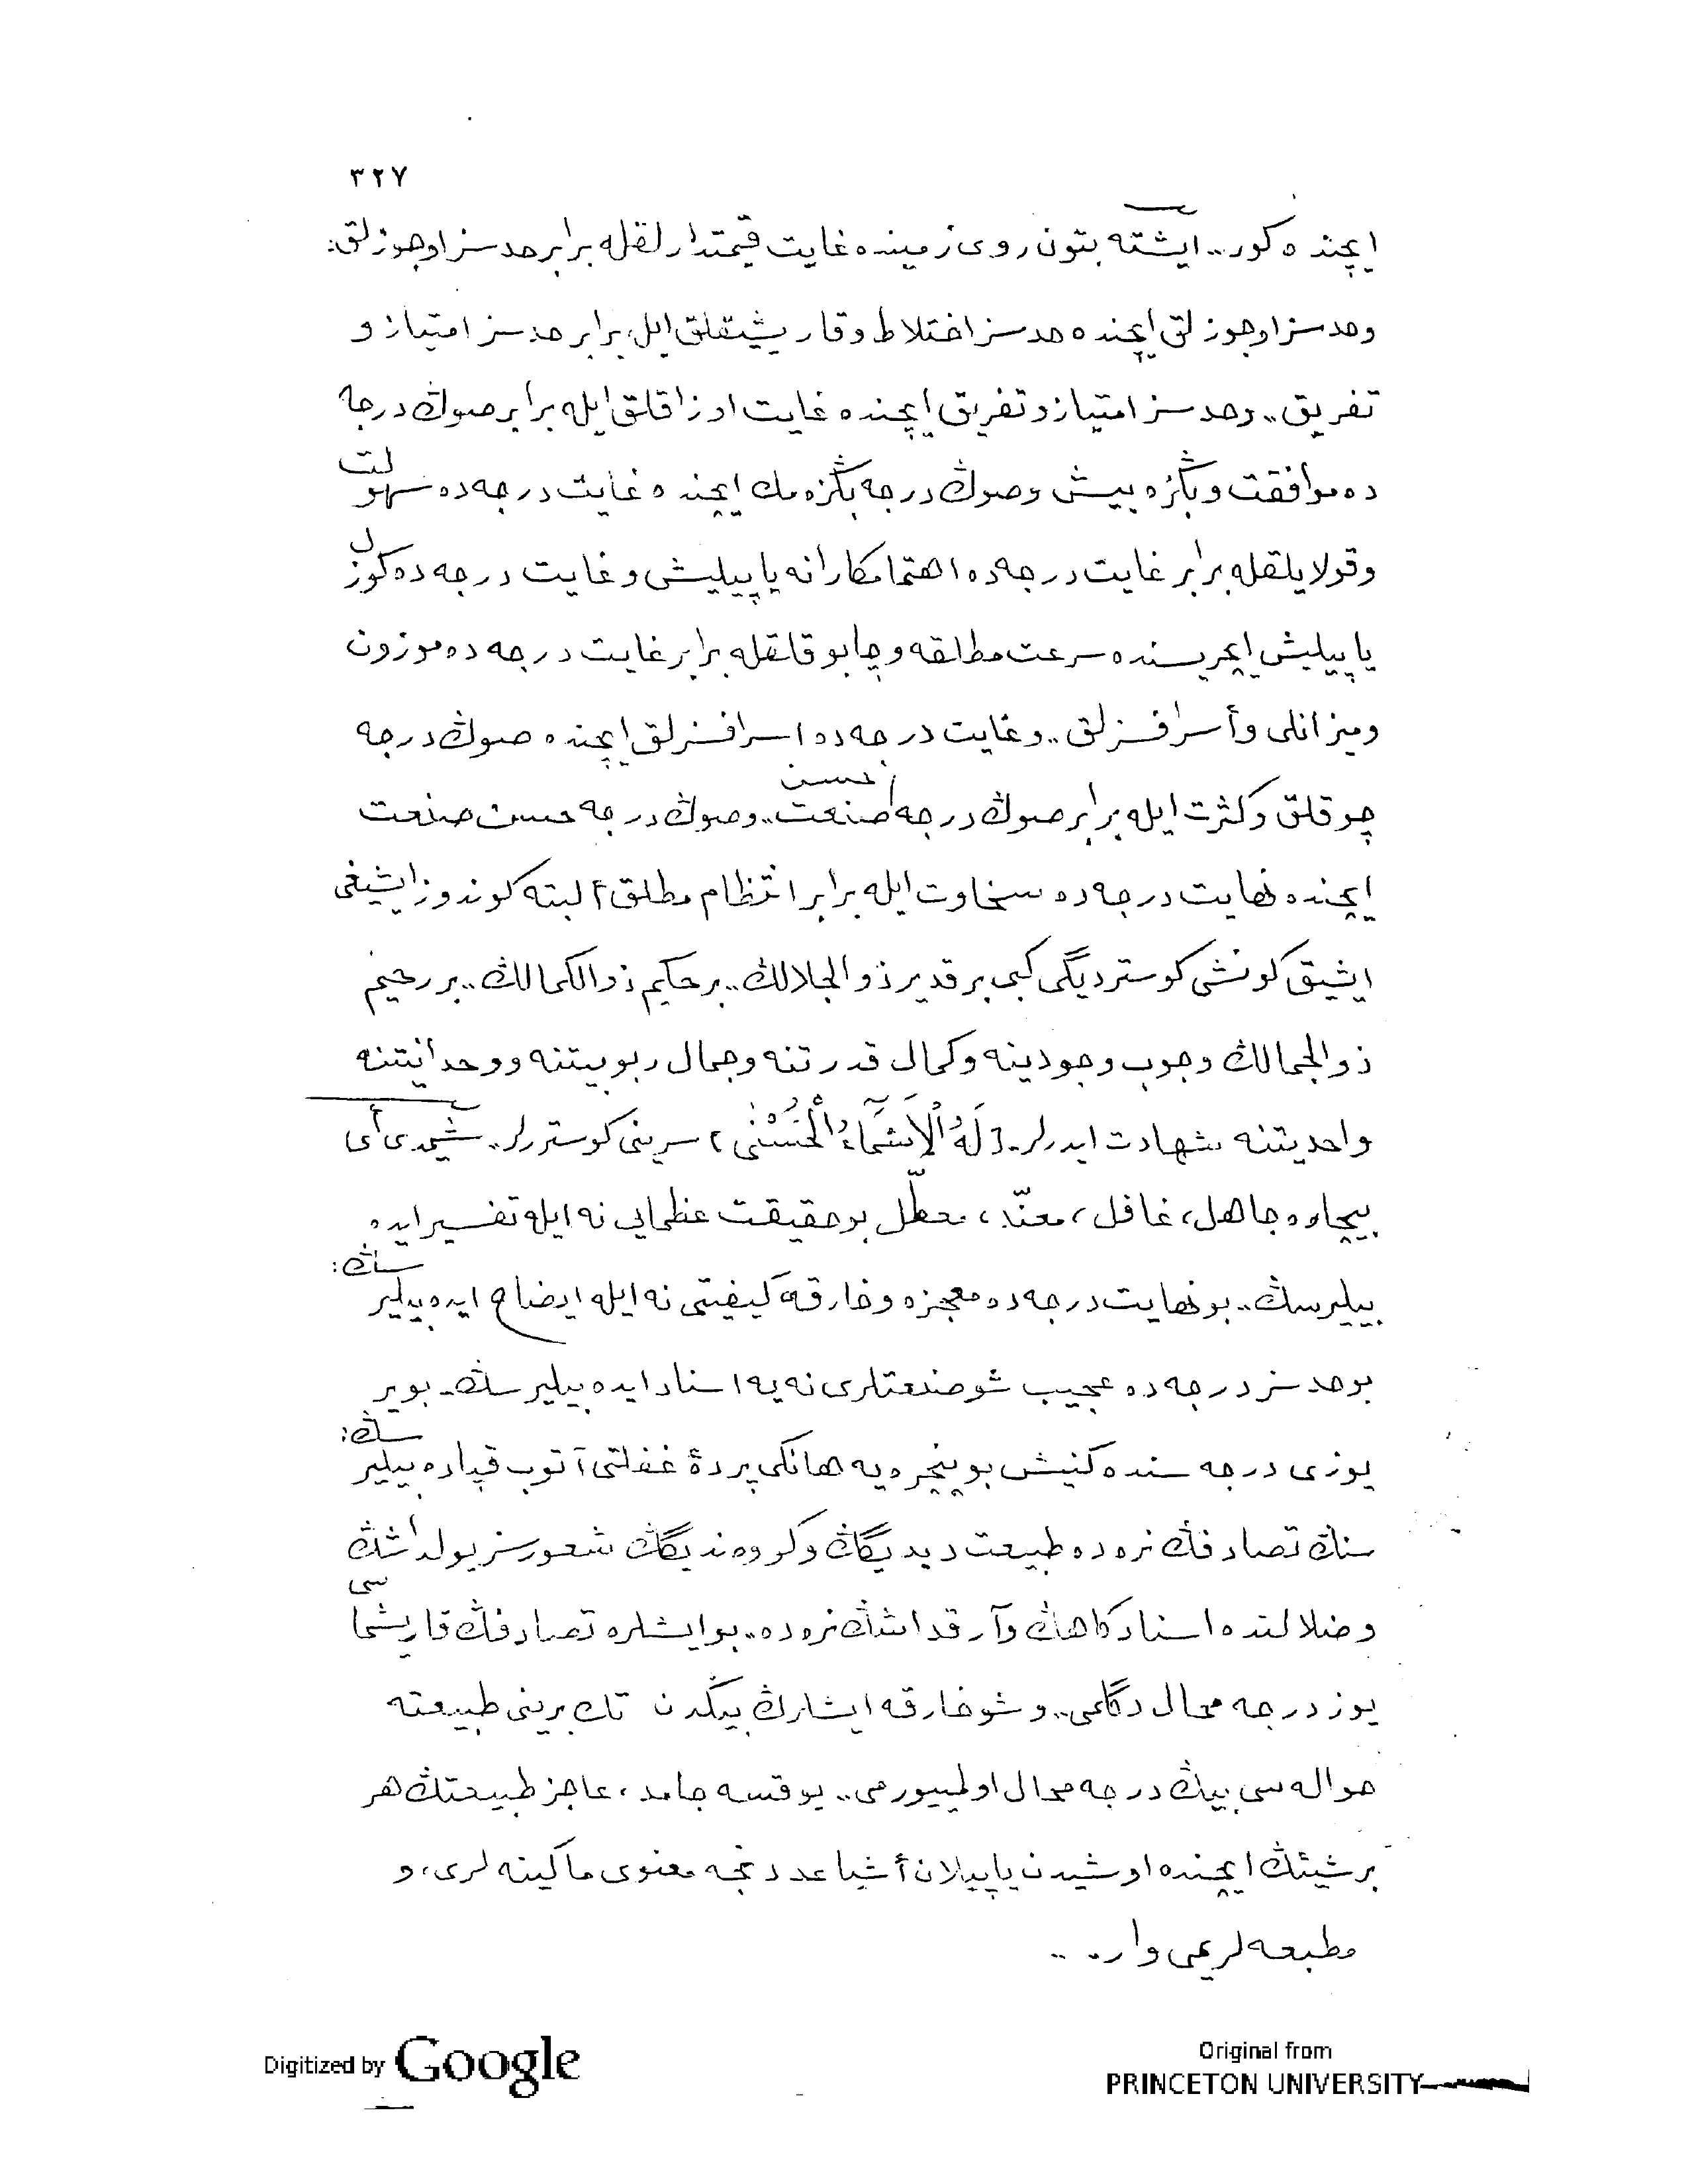 ٣٢٧
ایچنده كور.. ایشته بتون روی زمینده غایت قیمتدارلقله برابر حدسز اوجوزلق:
وحدسز اوجوزلق ایچنده حدسز اختلاط وقاریشیقلق ایله برابر حدسز امتیاز و
تفریق.. وحدسز امتیاز وتفریق ایچنده غایت اوزاقلق ایله برابر صوڭ درجه
ده موافقت وبڭزه ییش وصوڭ درجه بڭزه مك ایچنده غایت درجه ده سهولت
وقولایلقله برابر غایت درجه ده اهتمامكارانه یاپیلیش وغایت درجه ده كوزل
یاپیلیش ایچریسنده سرعت مطلقه وچابوقلقله برابر غایت درجه ده موزون
ومیزانلی وأسرافسزلق.. وغایت درجه ده اسرافسزلق ایچنده صوڭ درجه
چوقلق وكثرت ایله برابر صوڭ درجه حسن صنعت.. وصوڭ درجه حسن صنعت
ایچنده نهایت درجه ده سخاوت ایله برابر انتظام مطلق البته كوندوز ایشیغی
ایشیق كونشی كوستردیگی كبی بر قدیر ذوالجلالك.. بر حكیم ذوالكمالك.. بر رحیم
ذوالجمالك وجوب وجودینه وكمال قدرتنه وجمال ربوبیتنه ووحدانیتنه
واحدیتنه شهادت ایدرلر. ﴿لَهُ الْاَسْمَٓاءُ الْحُسْنٰى﴾ سرینی كوسترلر. شیمدی أی
بیچاره جاهل، غافل، معنّد، معطّل بو حقیقت عظمایی نه ایله تفسیر ایده
بیلیرسڭ.. بو نهایت درجه ده معجزه وخارقه كیفیتی نه ایله ایضاح ایده بیلیرسڭ:
بو حدسز درجه ده عجیب شو صنعتلری نه یه اسناد ایده بیلیرسڭ. بو یر
یوزی درجه سنده كنیش بو پنجره یه هانكی پردۀ غفلتی آتوب قپاده بیلیرسڭ:
سنڭ تصادفڭ نره ده طبیعت دیدیگڭ وكوه ندیگڭ شعورسز یولداشڭ
وضلالتده استنادكاهڭ وآرقداشڭ نره ده.. بو ایشلره تصادفڭ قاریشماسی
یوز درجه محال دگلمی.. و شو خارقه ایشلرڭ بیڭدن تك برینی طبیعته
حواله سی بیڭ درجه محال اولمییورمی.. یوقسه جامد، عاجز طبیعتڭ هر
بر شیئڭ ایچنده او شیدن یاپیلان أشیا عددنجه معنوی ماكینه لری، و
مطبعه لریمی وار. ..
Digitized by Google
Original from
PRINCETON UNIVERSITY